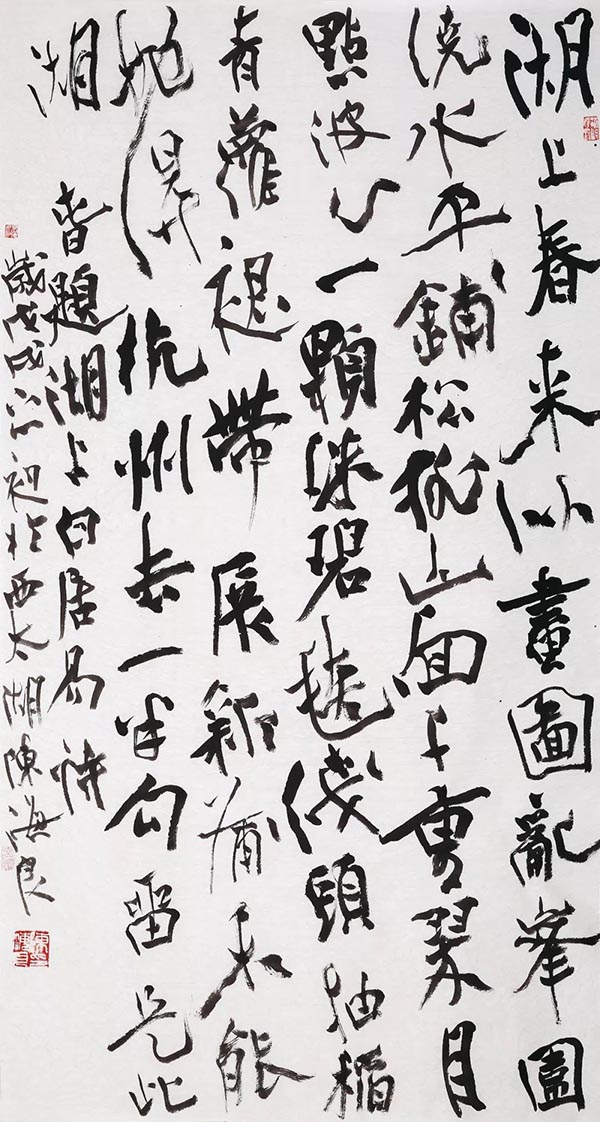 湖上春来似畫圖亂峯圍
繞水平鋪松排山面千重翠月
點波心一顆珠碧毯綫頭抽稻
青蘿裙帶展新蒲未能
拋得杭州去一半勾留是此
湖
春題湖上白居易詩
歲戊戌初於西太湖陳海良